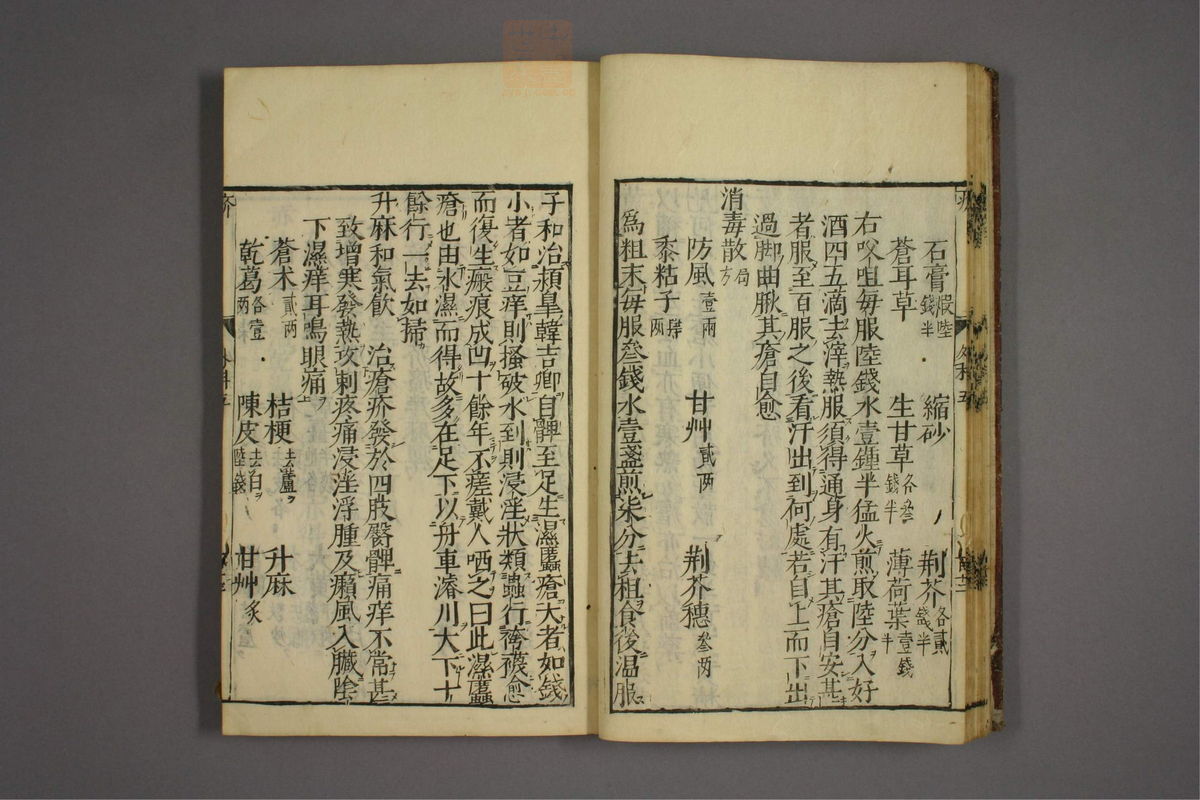 石膏煆陸錢半 縮砂 荆芥各貳錢半
蒼耳草 生甘草各叄錢半 薄荷葉壹錢半
右㕮咀毎服陸錢水壹鍾半猛火煎取陸分入好
酒四五滴去滓熱服須得通身有汗其瘡自安甚
者服至百服之後看汗出到何處若自上而下出
過脚曲脉其瘡自愈
消毒散局方
防風壹兩 甘艸貳两 荆芥穗叄两
黍粘子肆两
爲粗末毎服叄錢水壹盞煎柒分去粗食後温服
子和治頴皐韓吉卿自髀至足生濕䘌瘡大者如錢
小者如豆痒則搔破水到則浸淫狀類蟲行袴襪愈
而復生瘢痕成凹十餘年不瘥戴人哂之曰此濕䘌
瘡也由水濕而得故多在足下以舟車濬川大下十
餘行一去如掃
升麻和氣飲 治瘡疥發於四肢臀髀痛痒不常甚
致增寒發熱攻刺疼痛浸淫浮腫及癩風入臟陰
下濕痒耳鳴眼痛
蒼术貳两 桔梗去蘆 升麻
乾葛各壹两 陳皮去白陸錢 甘艸炙